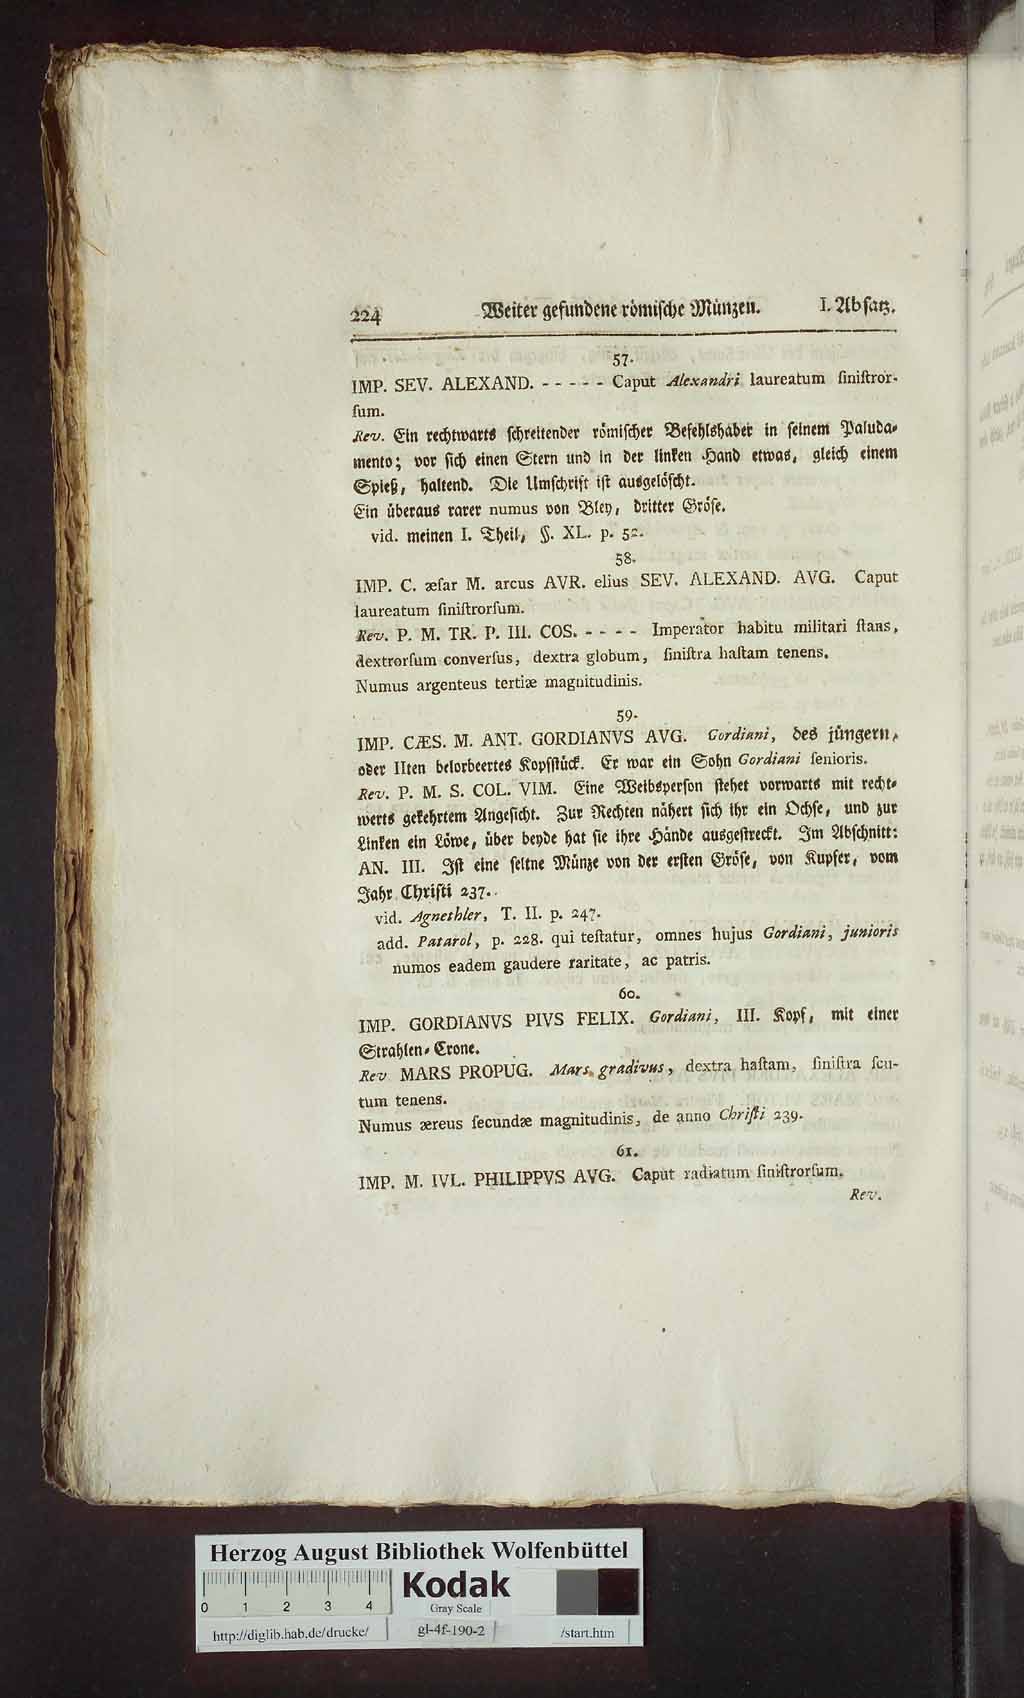 224 Weiter gefundene römische Münzen. I. Absatz.
57.
IMP. SEV. ALEXAND. - - - - - Caput Alexandri laureatum ſiniſtror-
ſum.
Rev. Ein rechtwarts ſchreitender römiſcher Befehlshaber in ſeinem Paluda-
mento; vor ſich einen Stern und in der linken Hand etwas, gleich einem
Spieß, haltend. Die Umſchrift iſt ausgelöſcht.
Ein überaus rarer numus von Bley, dritter Gröſe.
vid. meinen I. Theil, §. XL. p. 52.
58.
IMP. C. æſar M. arcus AVR. elius SEV. ALEXAND. AVG. Caput
laureatum ſiniſtrorſum.
Rev. P. M. TR. P. III. COS. - - - - Imperator habitu militari ſtans,
dextrorſum converſus, dextra globum, ſiniſtra haſtam tenens.
Numus argenteus tertiæ magnitudinis.
59.
IMP. CÆS. M. ANT. GORDIANVS AVG. Gordiani, des jüngern,
oder IIten belorbeertes Kopfſtück. Er war ein Sohn Gordiani ſenioris.
Rev. P. M. S. COL. VIM. Eine Weibsperſon ſtehet vorwarts mit recht-
werts gekehrtem Angeſicht. Zur Rechten nähert ſich ihr ein Ochſe, und zur
Linken ein Löwe, über beyde hat ſie ihre Hände ausgeſtreckt. Im Abſchnitt:
AN. III. Iſt eine ſeltne Münze von der erſten Gröſe, von Kupfer, vom
Jahr Chriſti 237.
vid. Agnethler, T. II. p. 247.
add. Patarol, p. 228. qui teſtatur, omnes hujus Gordiani, junioris
numos eadem gaudere raritate, ac patris.
60.
IMP. GORDIANVS PIVS FELIX. Gordiani, III. Kopf, mit einer
Strahlen-Crone.
Rev MARS PROPUG. Mars gradivus, dextra haſtam, ſiniſtra ſcu-
tum tenens.
Numus æreus ſecundæ magnitudinis, de anno Chriſti 239.
61.
IMP. M. IVL. PHILIPPVS AVG. Caput radiatum ſiniſtrorſum.
Rev.
Herzog August Bibliothek Wolfenbüttel
0 1 2 3 4
Kodak
Gray Scale
http://diglib.hab.de/drucke/ gl-4f-190-2 /start.htm